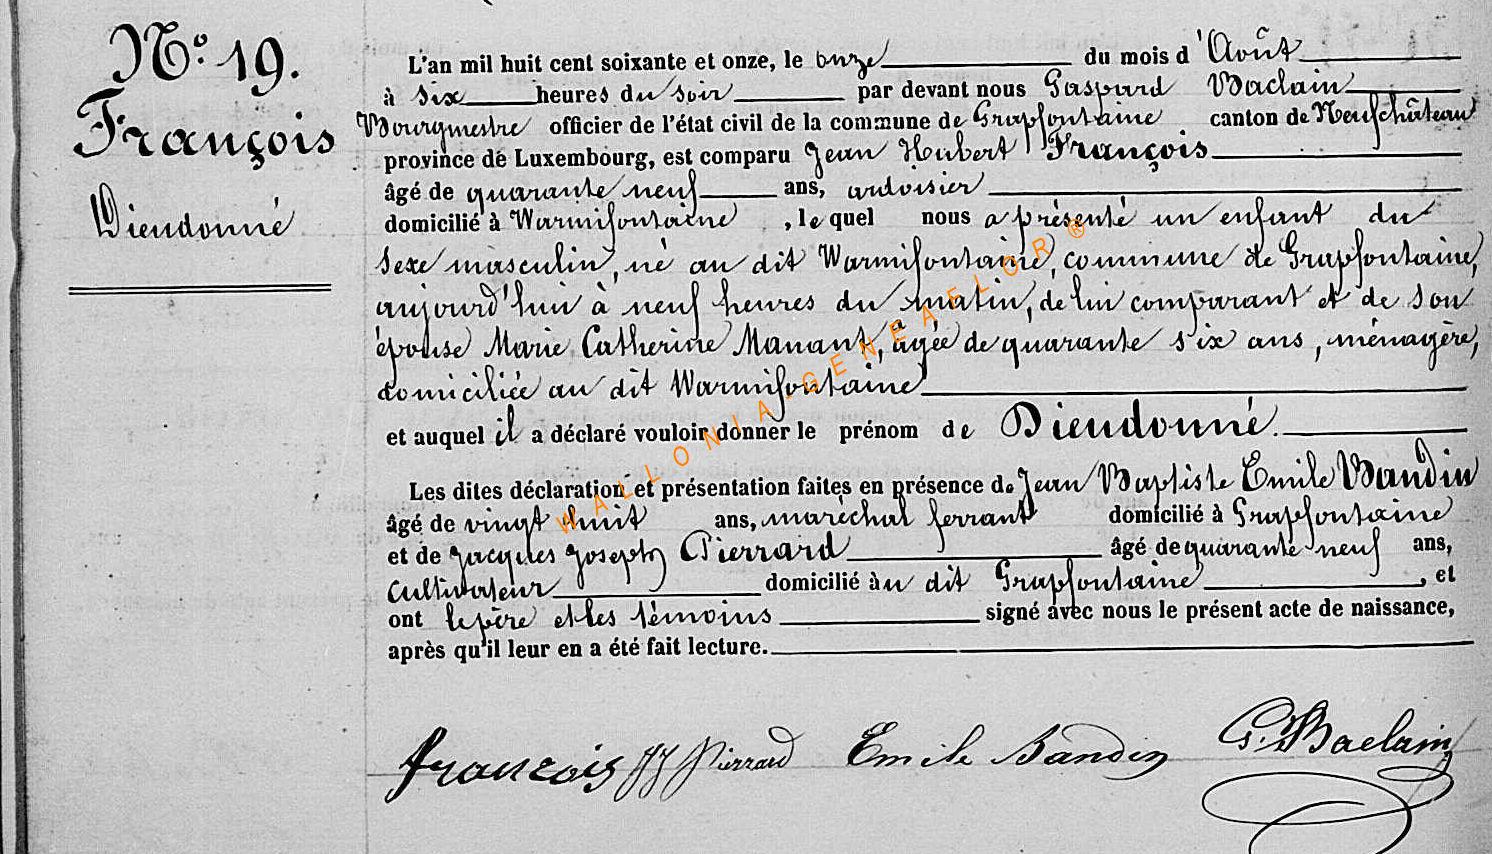 N.° 19.
François
Dieudonné
L'an mil huit cent soixante et onze, le onze du mois d'Août
à six heures du soir par devant nous Gaspard Baclain
Bourgmestre officier de l'état civil de la commune de Grapfontaine canton de Neufchâteau
province de Luxembourg, est comparu Jean Hubert François
âgé de quarante neuf ans, ardoisier
domicilié à Warmifontaine, lequel nous a présenté un enfant du
sexe masculin, né au dit Warmifontaine, commune de Grapfontaine,
aujourd'hui à neuf heures du matin, de lui comparant et de son
épouse Marie Catherine Manant, âgée de quarante six ans, ménagère,
domiciliée au dit Warmifontaine
et auquel il a déclaré vouloir donner le prénom de Dieudonné.
Les dites déclaration et présentation faites en présence de Jean Baptiste Emile Bandin
âgé de vingt huit ans, maréchal ferrant domicilié à Grapfontaine
et de Jacques Joseph Pierrard âgé de quarante neuf ans,
cultivateur domicilié au dit Grapfontaine, et
ont le père et les témoins signé avec nous le présent acte de naissance,
après qu'il leur en a été fait lecture.
françois JJ Pierrard Emile Bandin G. Baclain
WALLONIA-GENEALOR®